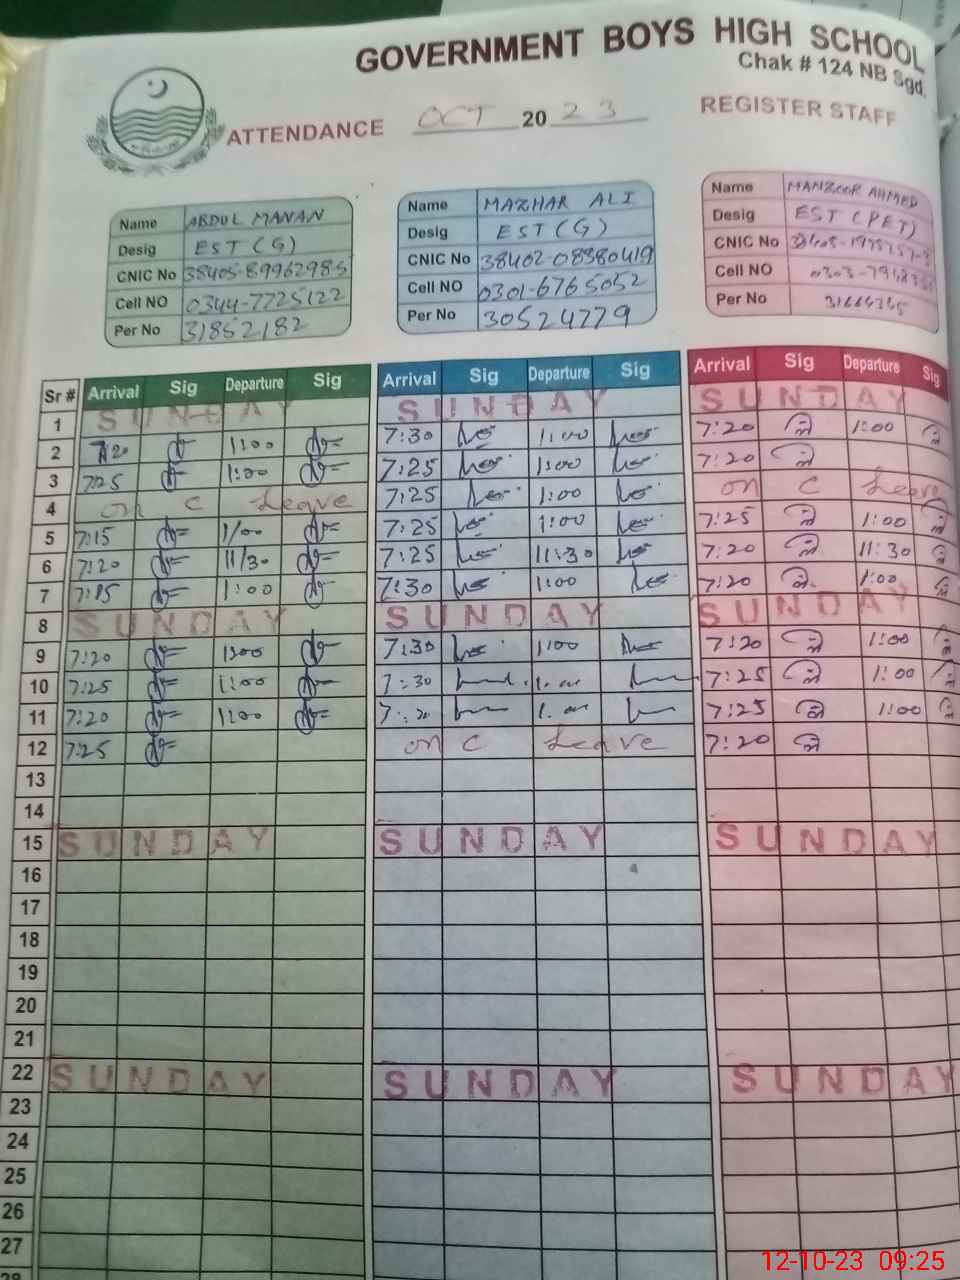 GOVERNMENT BOYS HIGH SCHOOL
Chak # 124 NB Sgd.
ATTENDANCE OCT 2023 REGISTER STAFF
Name ABDUL MANAN
Desig EST (G)
CNIC No 38405-89962985
Cell NO 0344-7725122
Per No 31852182
Name MAZHAR ALI
Desig EST (G)
CNIC No 38402-08380419
Cell NO 0301-6765052
Per No 30524779
Name MANZOOR AHMED
Desig EST (PET)
CNIC No
Cell NO
Per No
Sr # Arrival Sig Departure Sig Arrival Sig Departure Sig Arrival Sig Departure Sig
1 SUNDAY SUNDAY SUNDAY
2 7:20 1:00 7:30 1:00 7:20 1:00
3 7:25 1:00 7:25 1:00 7:20
4 on C Leave 7:25 1:00 on C Leave
5 7:15 1/00 7:25 1:00 7:25 1:00
6 7:20 11/30 7:25 11:30 7:20 11:30
7 7:15 1:00 7:30 1:00 7:20 1:00
8 SUNDAY SUNDAY SUNDAY
9 7:20 1:00 7:30 1:00 7:20 1:00
10 7:25 1:00 7:30 1:00 7:25 1:00
11 7:20 1:00 1:00 7:25 1:00
12 7:25 on C Leave 7:20
13
14
15 SUNDAY SUNDAY SUNDAY
16
17
18
19
20
21
22 SUNDAY SUNDAY SUNDAY
23
24
25
26
27
28
12-10-23 09:25